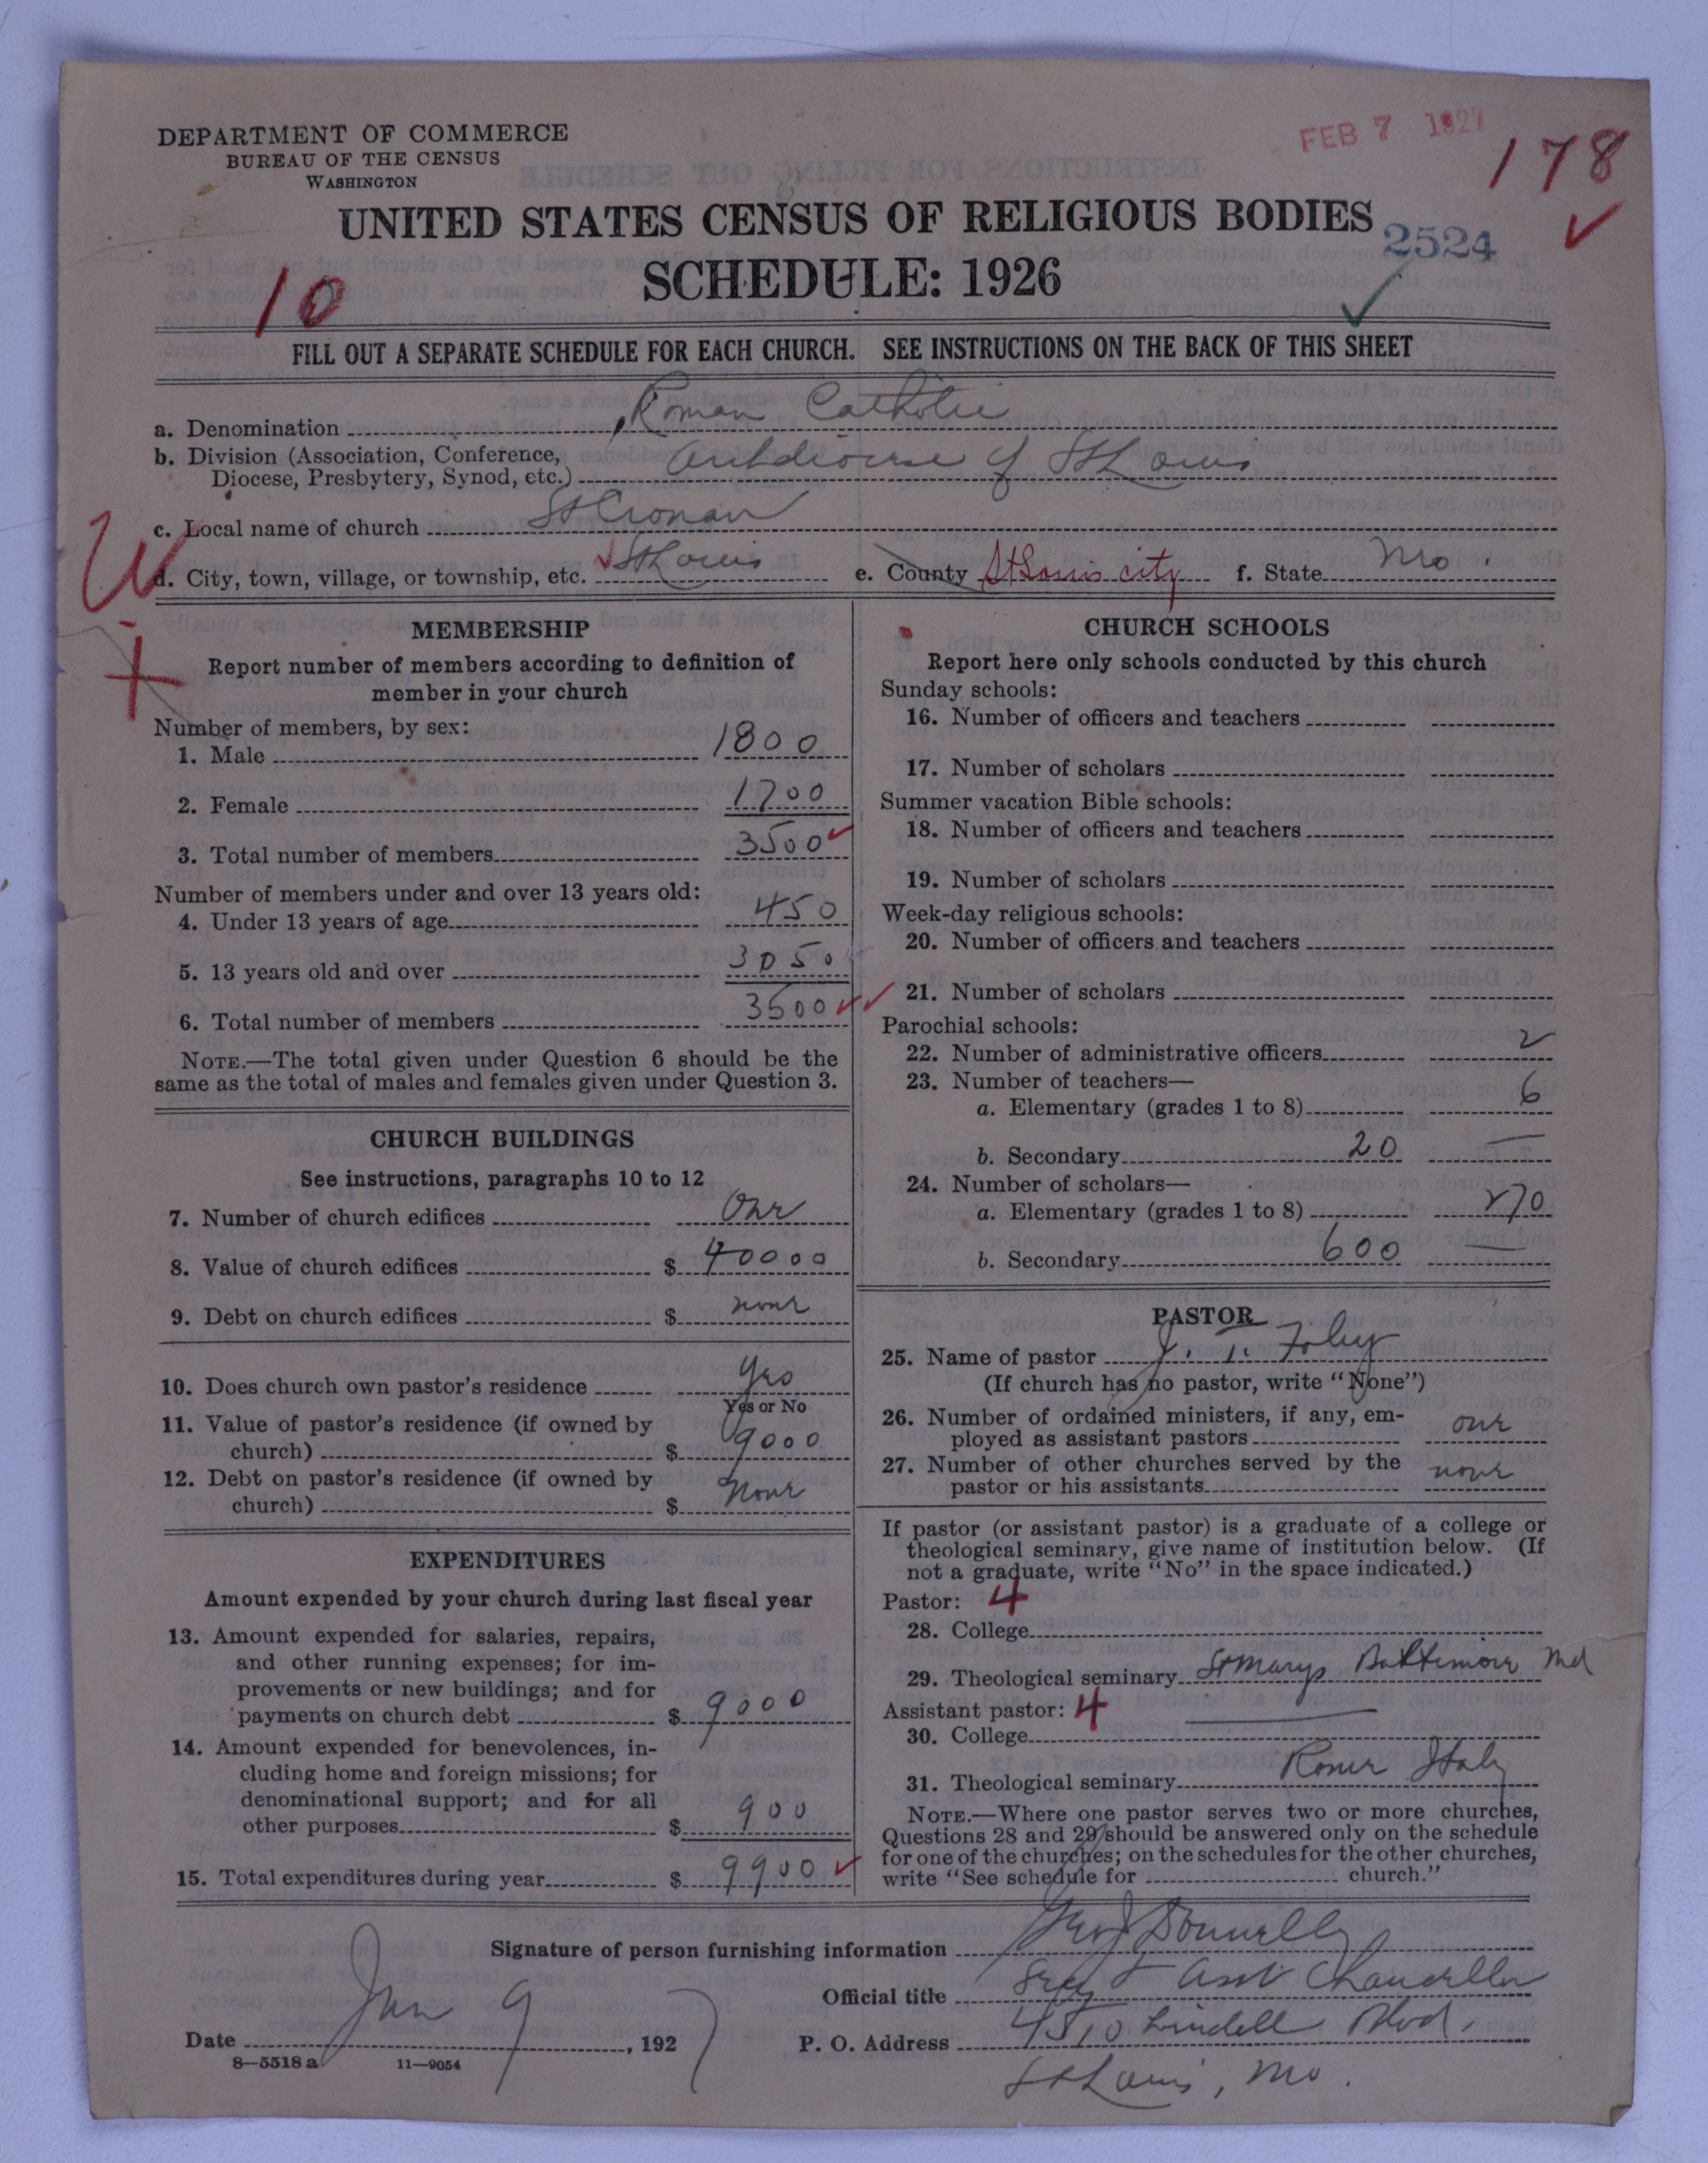 DEPARTMENT OF COMMERCE
BUREAU OF THE CENSUS
WASHINGTON
FEB 7 1927
178
UNITED STATES CENSUS OF RELIGIOUS BODIES
2524
SCHEDULE: 1926
10
FILL OUT A SEPARATE SCHEDULE FOR EACH CHURCH. SEE INSTRUCTIONS ON THE BACK OF THIS SHEET
a. Denomination Roman Catholic
b. Division (Association, Conference,
Diocese, Presbytery, Synod, etc.) Archdiocese of St Louis
c. Local name of church St Cronan
d. City, town, village, or township, etc. St Louis e. County St Louis city f. State Mo.
MEMBERSHIP
Report number of members according to definition of
member in your church
Number of members, by sex:
1. Male 1800
2. Female 1700
3. Total number of members 3500
Number of members under and over 13 years old:
4. Under 13 years of age 450
5. 13 years old and over 3050
6. Total number of members 3500
NOTE.—The total given under Question 6 should be the
same as the total of males and females given under Question 3.
CHURCH BUILDINGS
See instructions, paragraphs 10 to 12
7. Number of church edifices One
8. Value of church edifices $ 40000
9. Debt on church edifices $ none
10. Does church own pastor's residence Yes
Yes or No
11. Value of pastor's residence (if owned by
church) $ 9000
12. Debt on pastor's residence (if owned by
church) $ None
EXPENDITURES
Amount expended by your church during last fiscal year
13. Amount expended for salaries, repairs,
and other running expenses; for im-
provements or new buildings; and for
payments on church debt $ 9000
14. Amount expended for benevolences, in-
cluding home and foreign missions; for
denominational support; and for all
other purposes $ 900
15. Total expenditures during year $ 9900
CHURCH SCHOOLS
Report here only schools conducted by this church
Sunday schools:
16. Number of officers and teachers
17. Number of scholars
Summer vacation Bible schools:
18. Number of officers and teachers
19. Number of scholars
Week-day religious schools:
20. Number of officers and teachers
21. Number of scholars
Parochial schools:
22. Number of administrative officers 2
23. Number of teachers—
a. Elementary (grades 1 to 8) 6
b. Secondary 20 —
24. Number of scholars—
a. Elementary (grades 1 to 8) 270
b. Secondary 600 —
PASTOR
25. Name of pastor J. T. Foley
(If church has no pastor, write "None")
26. Number of ordained ministers, if any, em-
ployed as assistant pastors one
27. Number of other churches served by the
pastor or his assistants none
If pastor (or assistant pastor) is a graduate of a college or
theological seminary, give name of institution below. (If
not a graduate, write "No" in the space indicated.)
Pastor: 4
28. College
29. Theological seminary St Marys Baltimore Md
Assistant pastor: 4
30. College
31. Theological seminary Rome Italy
NOTE.—Where one pastor serves two or more churches,
Questions 28 and 29 should be answered only on the schedule
for one of the churches; on the schedules for the other churches,
write "See schedule for church."
Signature of person furnishing information Geo J Donnelly
Official title Secy & Asst Chancellor
Date Jan 9, 1927 P. O. Address 4510 Lindell Blvd.
8—5518 a 11—9054
St Louis, Mo.